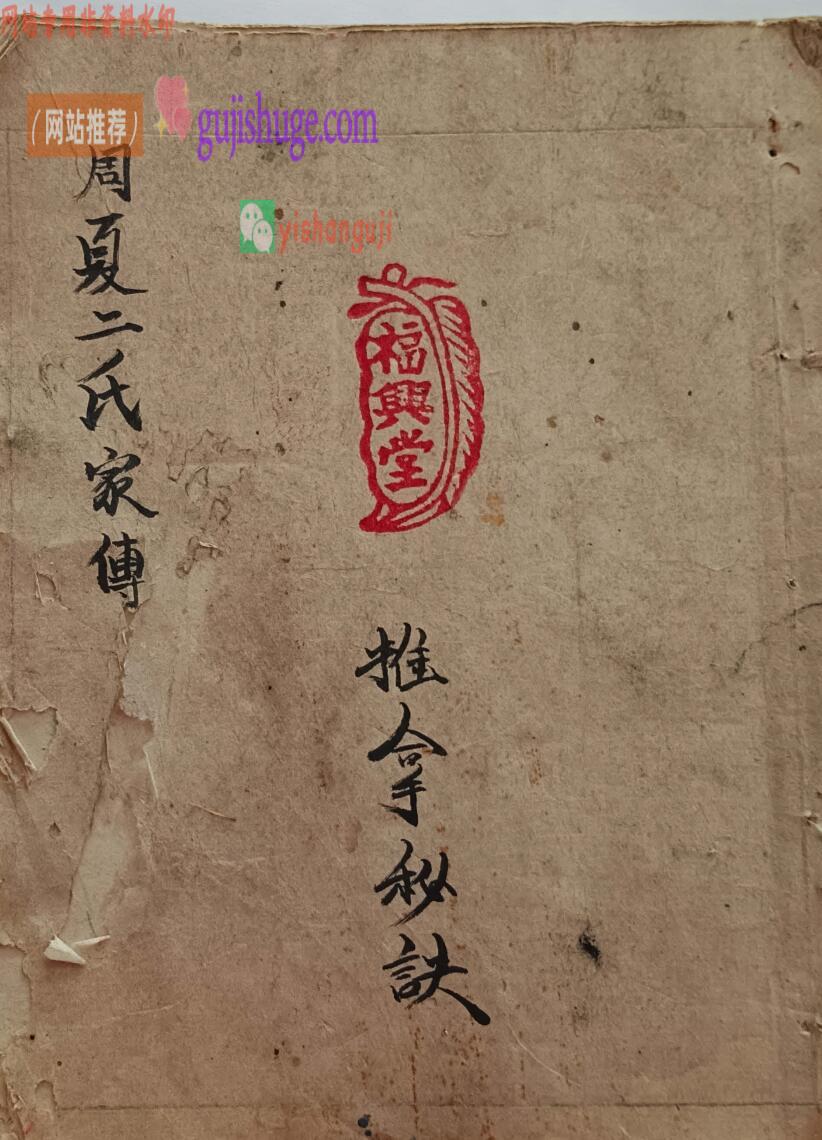 网站专用非资料水印
（网站推荐）
gujishuge.com
yishanguji
福興堂
推拿秘訣
周夏二氏家傳